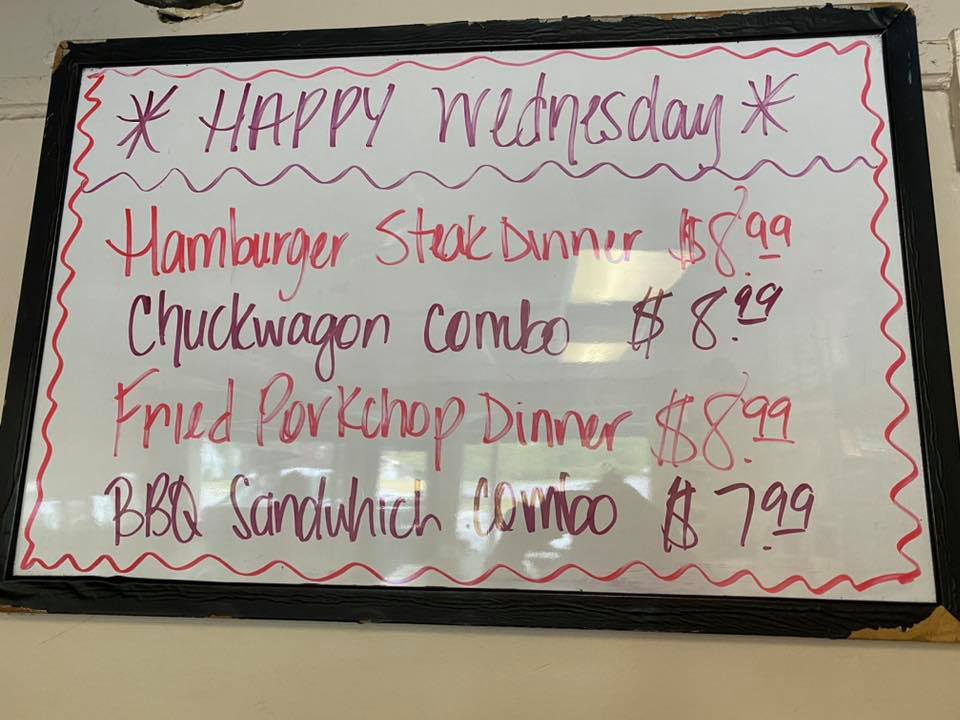 * HAPPY Wednesday *
Hamburger Steak Dinner $8.99
Chuckwagon Combo $8.99
Fried Porkchop Dinner $8.99
BBQ Sandwhich Combo $7.99